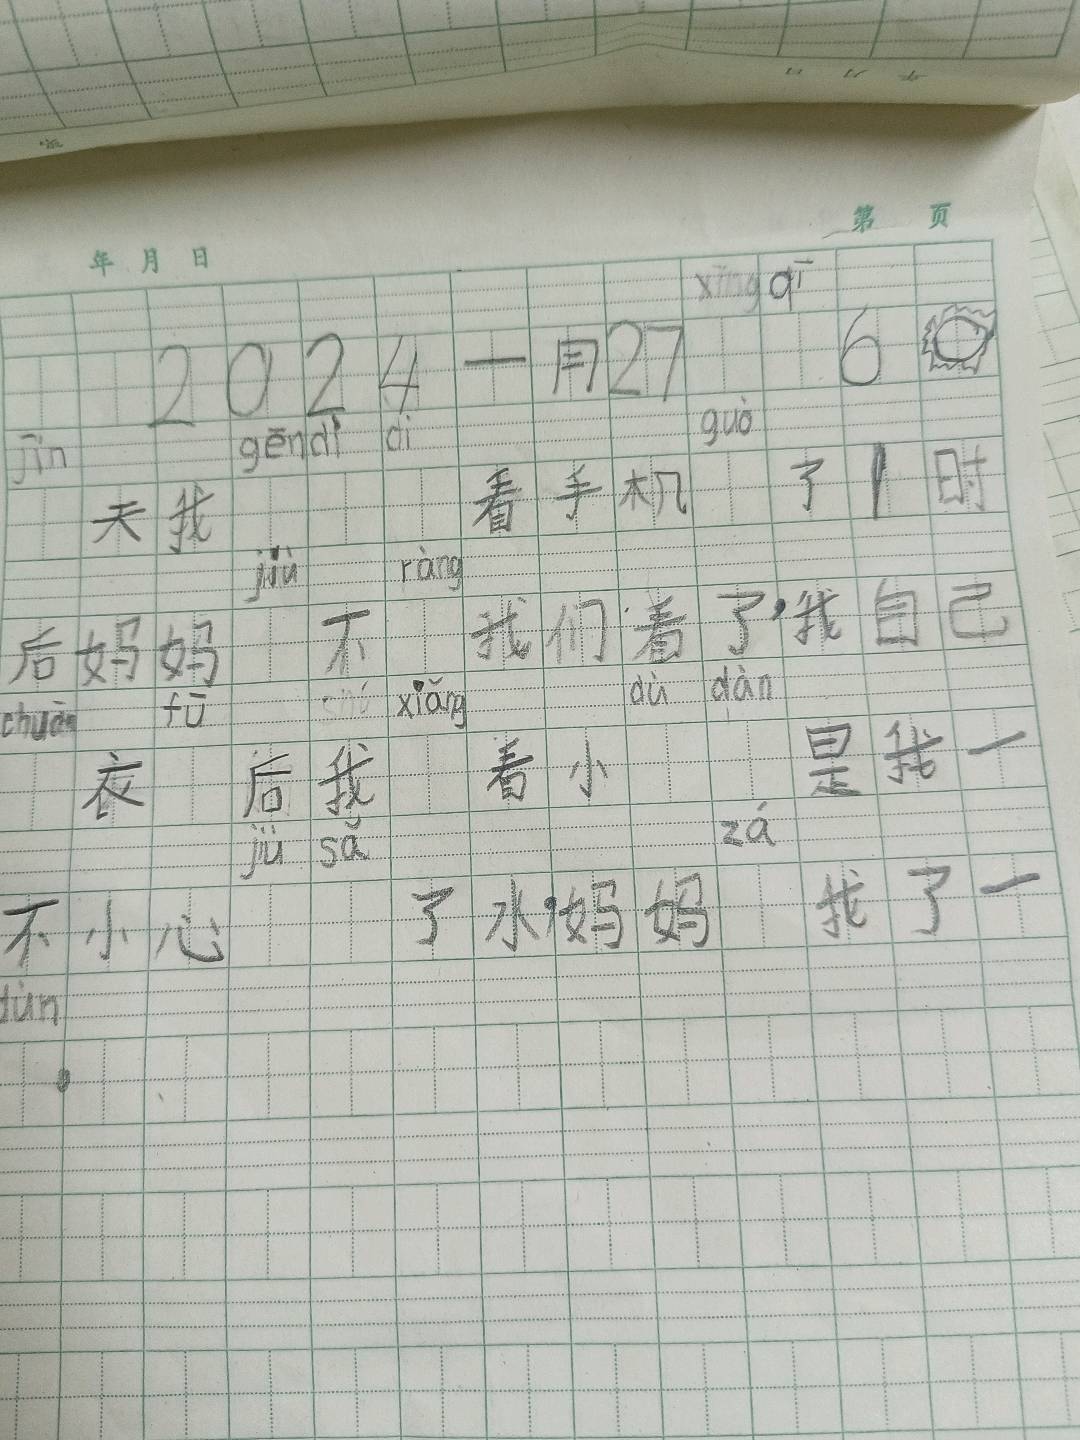 第 页
年 月 日
xīng qī
2024一月27 6
jīn gēn dì di guò
天我 看手机 了1时
jiù ràng
后妈妈 不 我们看了,我自己
chuān fū chú xiǎng dù dàn
衣 后我 看小 是我一
jiù sǎ zá
不小心 了水,妈妈 我了一
dùn